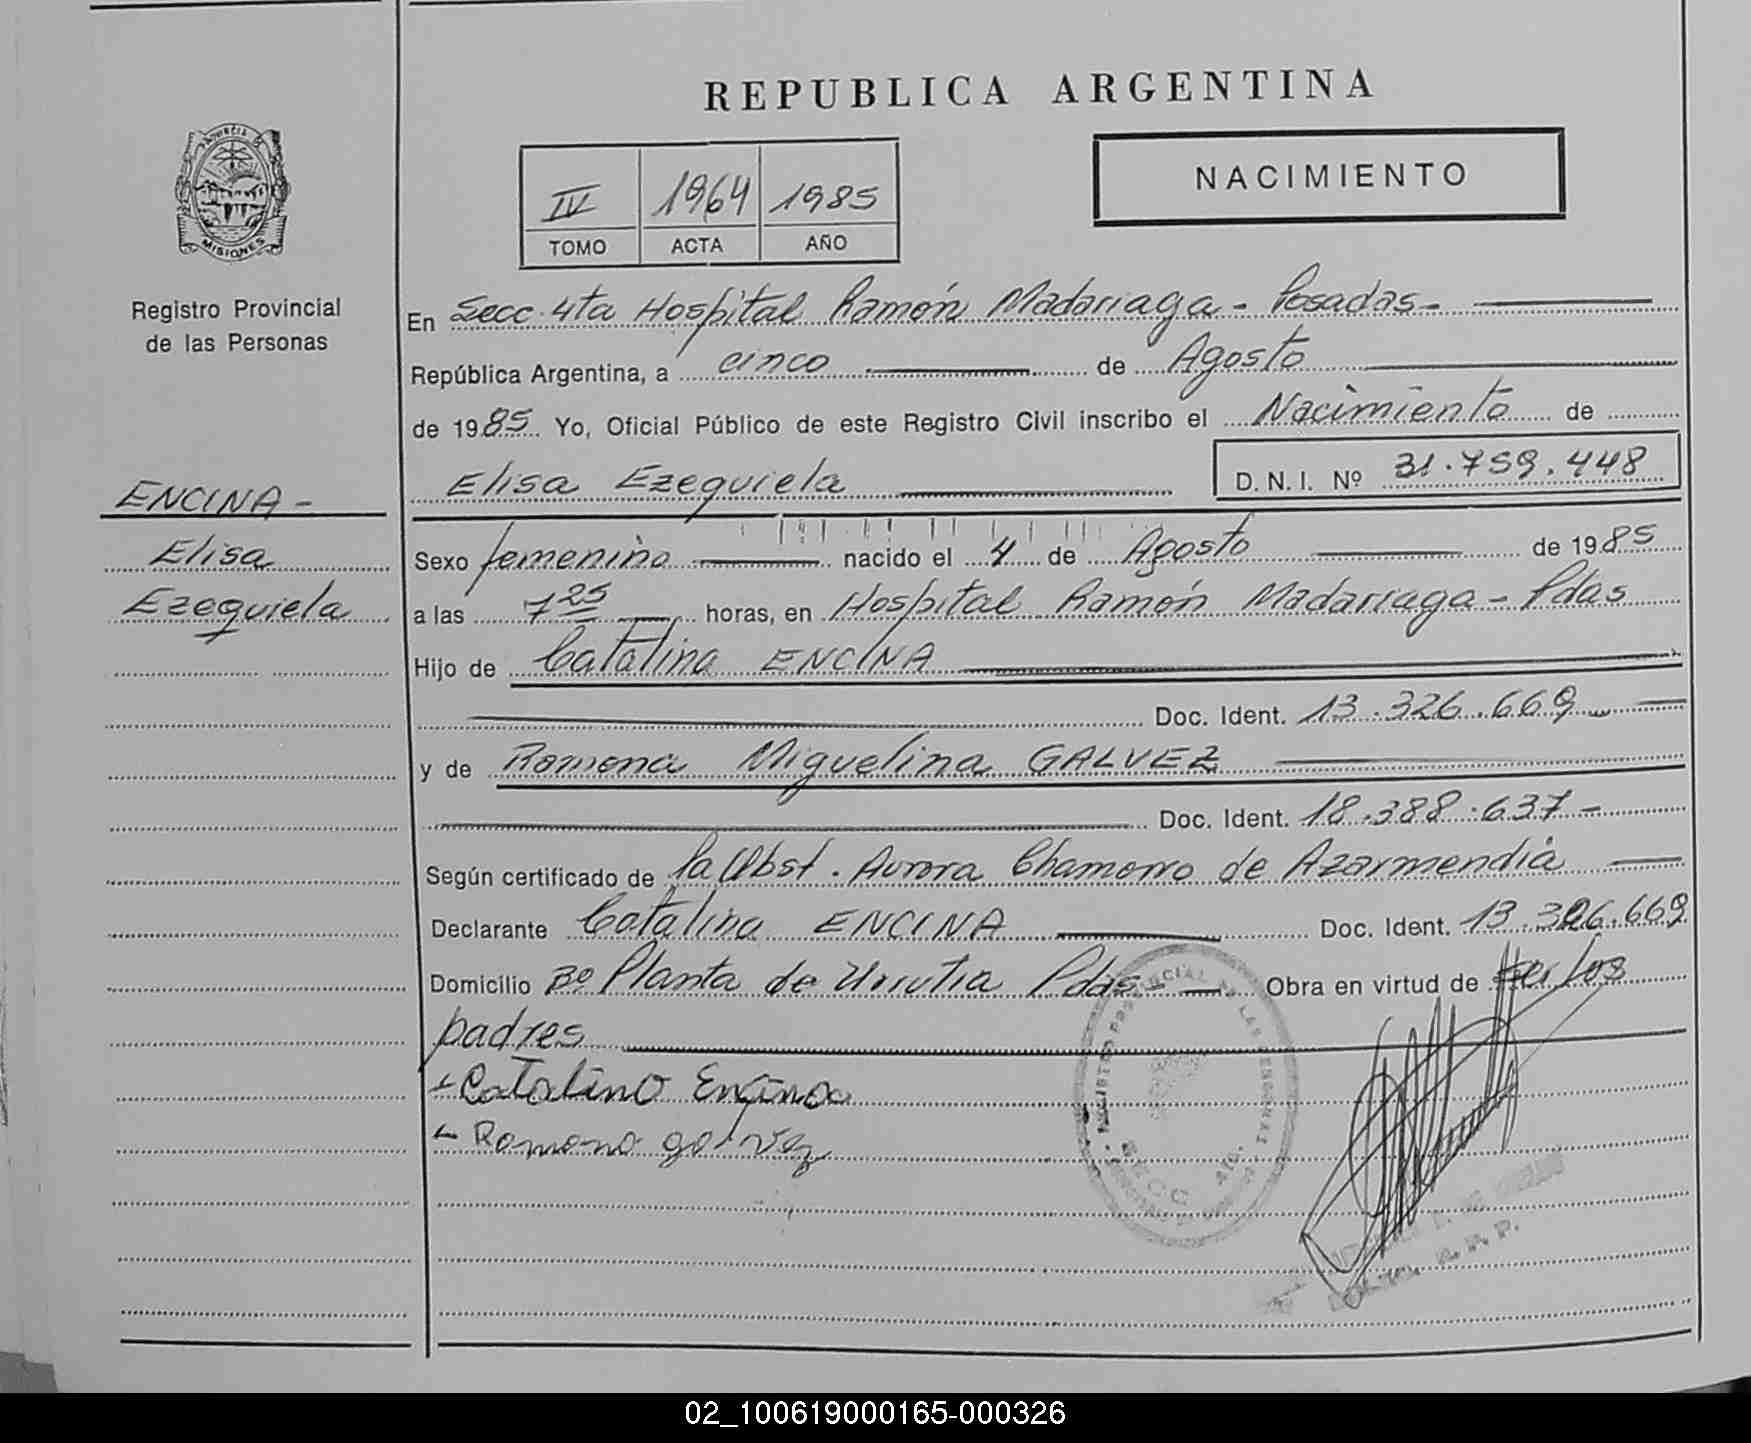 REPUBLICA ARGENTINA
PROVINCIA
MISIONES
Registro Provincial
de las Personas
IV 1964 1985
TOMO ACTA AÑO
NACIMIENTO
En Secc. 4ta Hospital Ramón Madariaga - Posadas -
República Argentina, a cinco de Agosto
de 1985 Yo, Oficial Público de este Registro Civil inscribo el Nacimiento de
Elisa Ezequiela D. N. I. Nº 31.759.448
ENCINA -
Elisa
Ezequiela
Sexo femenino nacido el 4 de Agosto de 1985
a las 7 25 horas, en Hospital Ramón Madariaga - Pdas
Hijo de Catalino ENCINA
Doc. Ident. 13.326.669
y de Ramona Miguelina GALVEZ
Doc. Ident. 18.388.637 -
Según certificado de la Obst. Aurora Chamorro de Azarmendia
Declarante Catalino ENCINA Doc. Ident. 13.326.669
Domicilio Bº Planta de Urrutia Pdas - Obra en virtud de ser los
padres
Catalino Encina
Ramona galvez
REGISTRO PROVINCIAL DE LAS PERSONAS
SECC. 4ta.
02_100619000165-000326